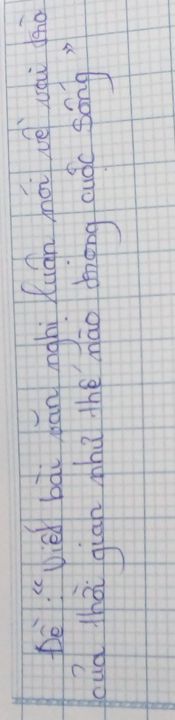 Đề: "Viết bài văn nghị luận nói về vai trò
của thời gian như thế nào trong cuộc sống"